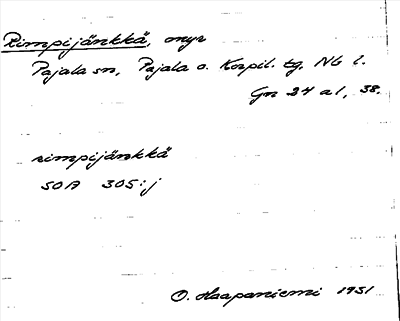 Rimpijänkkä, myr
Pajala sn, Pajala o. Korpil. tg, Nb l.
Gn 24 a1, 38.
rimpijänkkä
SOA 305:j
O. Haapaniemi 1931